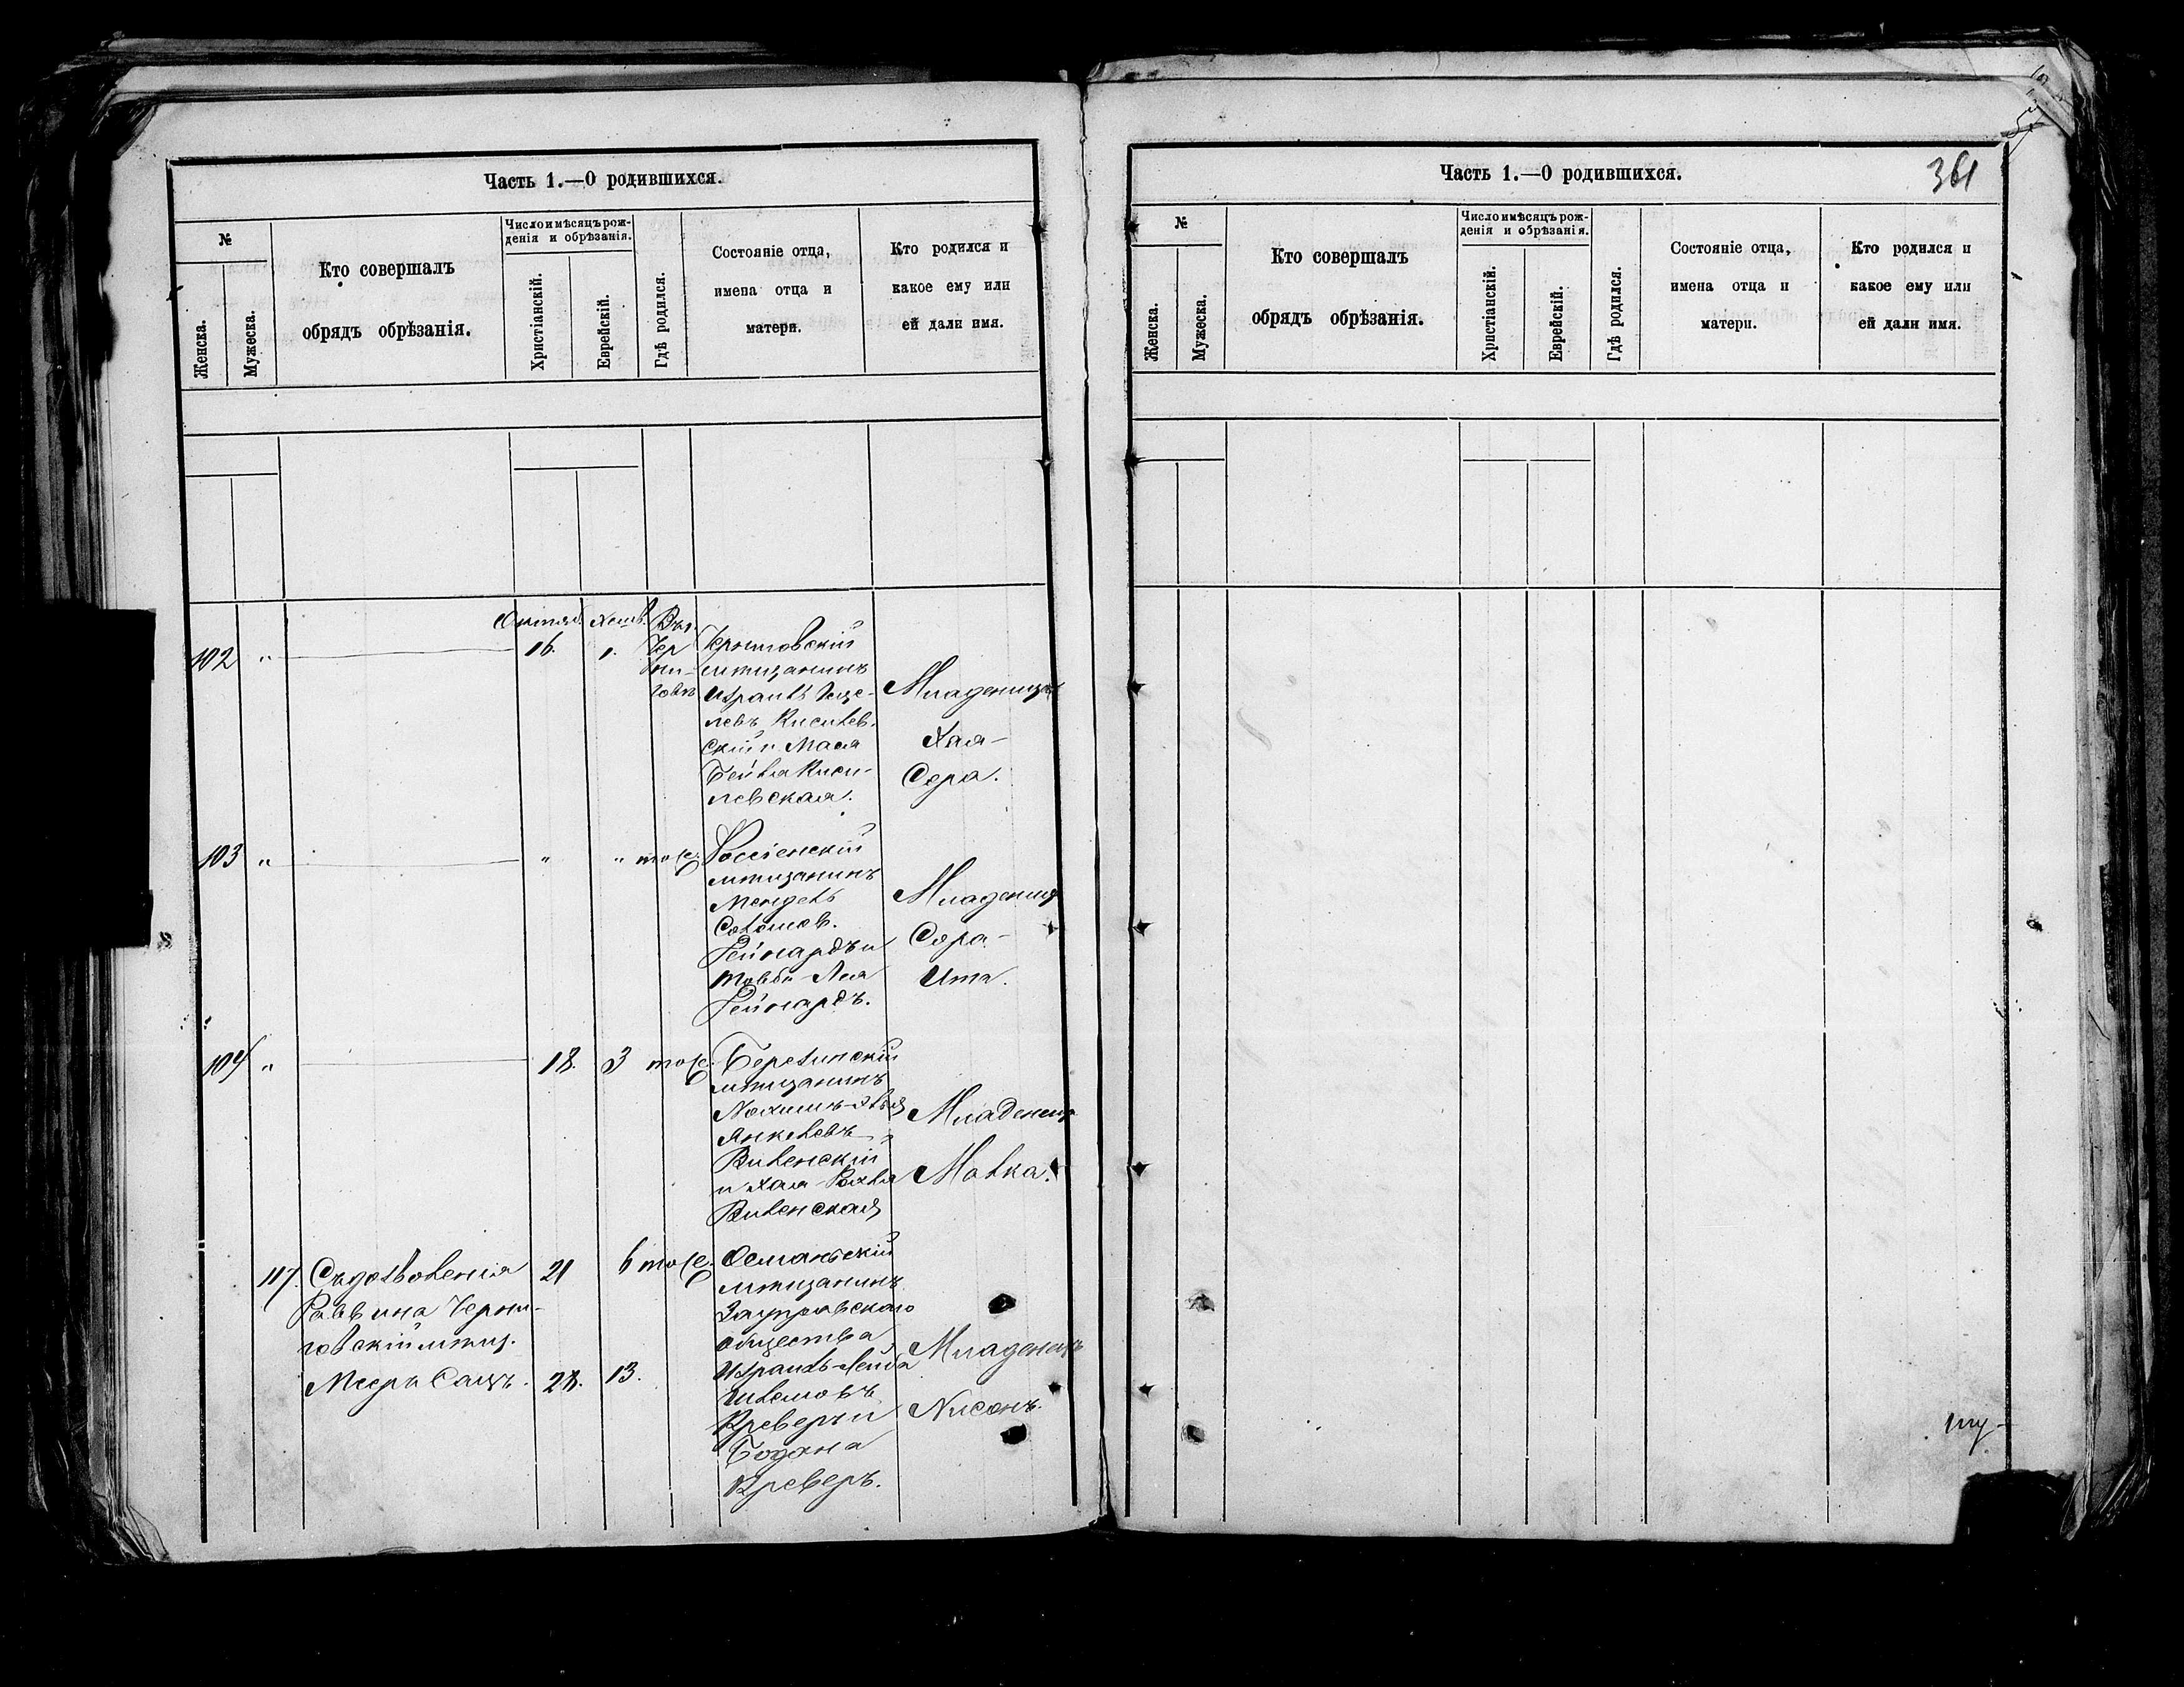 Часть 1.—О родившихся.
№
Женска.
Мужеска.
Кто совершалъ
обрядъ обрѣзанія.
Число и мѣсяцъ рож-
денія и обрѣзанія.
Христіанскій.
Еврейскій.
Гдѣ родился.
Состояніе отца,
имена отца и
матери.
Кто родился и
какое ему или
ей дали имя.
102 "
Октяб.
16.
Хешв.
1.
Въ г.
Чер
ни-
говѣ
Черниговскій
мѣщанинъ
Израиль
левъ Кисилев-
скій и Мася
Бейла Киси-
левская.
Младеница
Хая-
Сора.
103 "
" " тоже.
Россіенскій
мѣщанинъ
Мендель
Солом.
Рейнардъ и
Товби-Лея
Рейнардъ.
Младеница
Сора-
Ита.
104 "
18. 3 тоже.
Березинскій
мѣщанинъ
Янкелевъ
Виленскій
и Хая-Рохля
Виленская
Младеница
Малка.
117.
Съ дозволенія
Раввина Черни-
говскій мѣщ.
Мееръ Сацъ.
21
28.
6
13.
тоже.
Османьскій
мѣщанинъ
общества
Израиль-Лейба
Креверъ и
Богдана
Креверъ.
Младенецъ
Нисонъ.
Часть 1.—О родившихся.
361
№
Женска.
Мужеска.
Кто совершалъ
обрядъ обрѣзанія.
Число и мѣсяцъ рож-
денія и обрѣзанія.
Христіанскій.
Еврейскій.
Гдѣ родился.
Состояніе отца,
имена отца и
матери.
Кто родился и
какое ему или
ей дали имя.